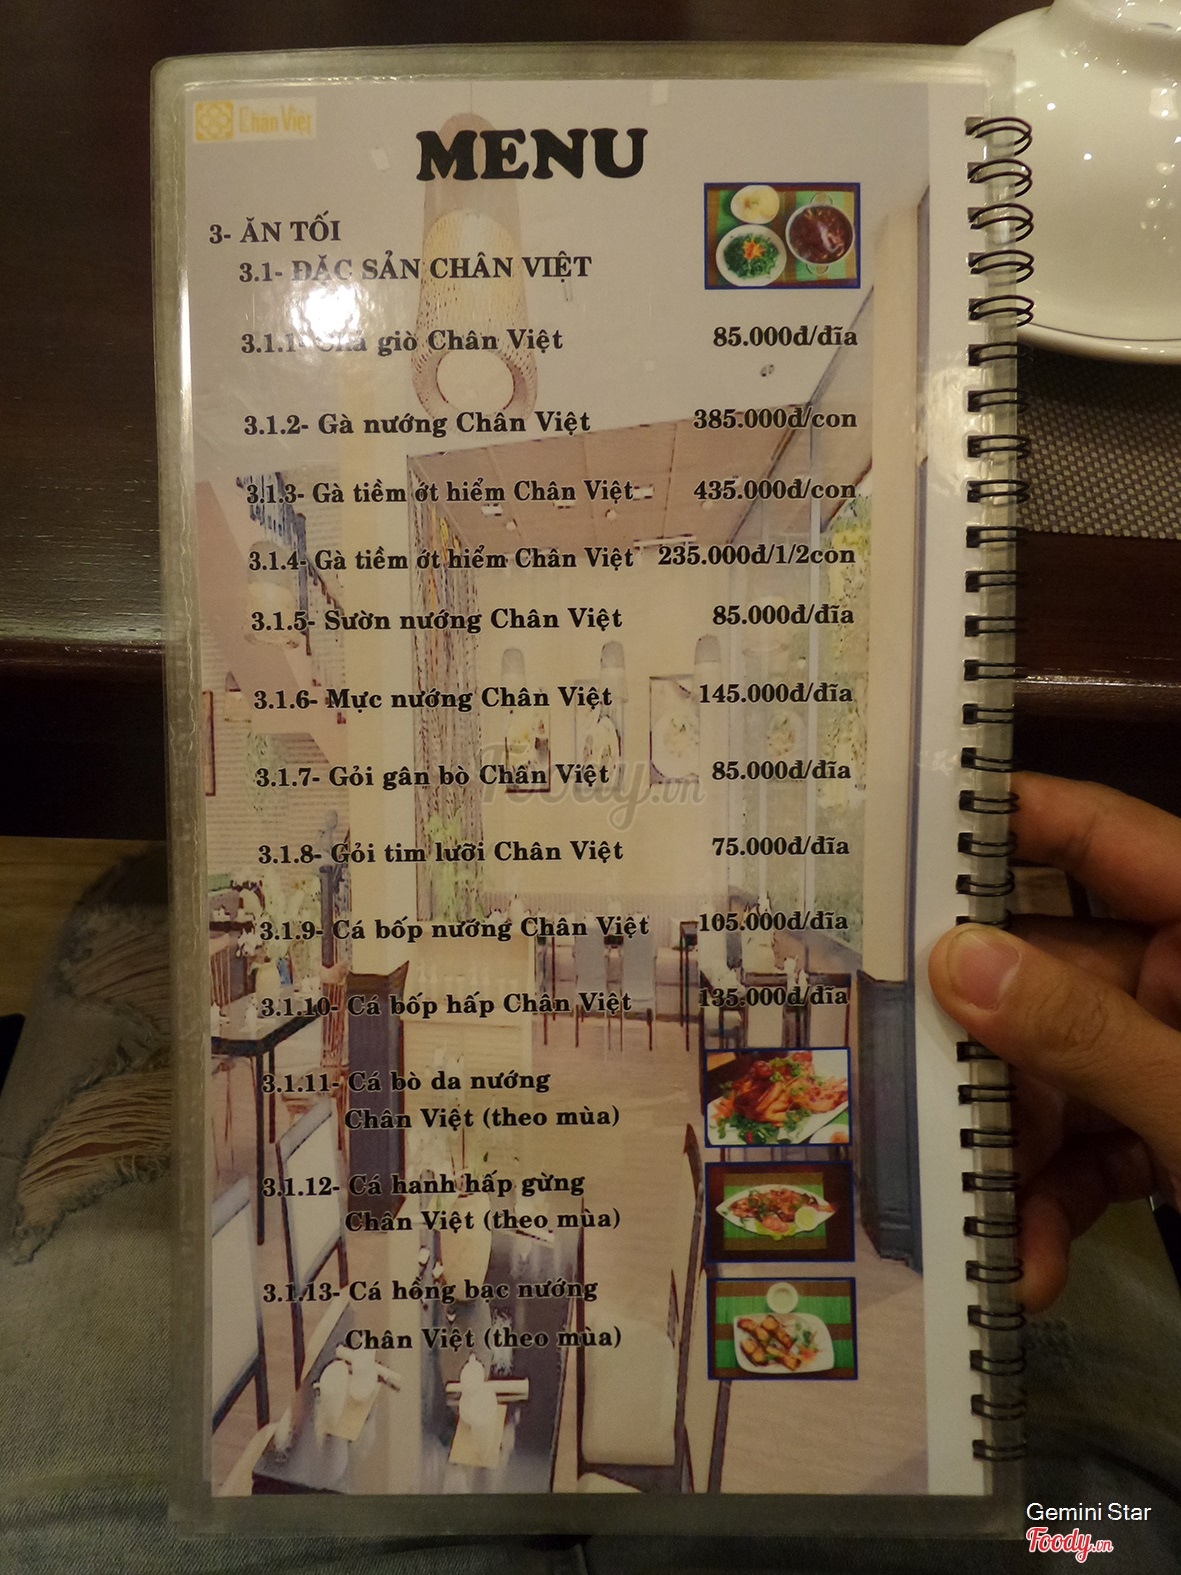 Chân Việt
MENU
3- ĂN TỐI
3.1- ĐẶC SẢN CHÂN VIỆT
3.1.1- Chả giò Chân Việt 85.000đ/đĩa
3.1.2- Gà nướng Chân Việt 385.000đ/con
3.1.3- Gà tiềm ớt hiểm Chân Việt 435.000đ/con
3.1.4- Gà tiềm ớt hiểm Chân Việt 235.000đ/1/2con
3.1.5- Sườn nướng Chân Việt 85.000đ/đĩa
3.1.6- Mực nướng Chân Việt 145.000đ/đĩa
3.1.7- Gỏi gân bò Chân Việt 85.000đ/đĩa
Foody.vn
3.1.8- Gỏi tim lưỡi Chân Việt 75.000đ/đĩa
3.1.9- Cá bốp nướng Chân Việt 105.000đ/đĩa
3.1.10- Cá bốp hấp Chân Việt 135.000đ/đĩa
3.1.11- Cá bò da nướng
Chân Việt (theo mùa)
3.1.12- Cá hanh hấp gừng
Chân Việt (theo mùa)
3.1.13- Cá hồng bạc nướng
Chân Việt (theo mùa)
Gemini Star
Foody.vn